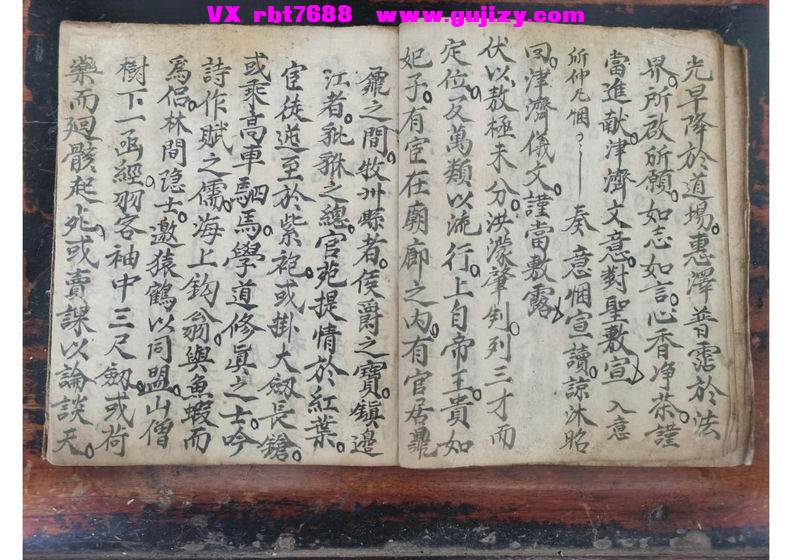 VX rbt7688 www.gujizy.com
光早降於道場。惠澤普霑於法
界。所啟所願。如志如言。心香净茶。謹
當進献津濟文意。對聖敷宣 入意
所伸凡悃 奏 意悃宣讀。諒沐昭
回。津濟儀文。謹當敷露
伏以敖極未分。洪濛肇判。列三才而
定位。及萬類以流行。上自帝王。貴如
妃子。有宦在廟廊之内。有官居鼎
鼐之間。牧州縣者。侯爵之寶。鎮邊
江者。羆貅之總。官苑提情於紅葉。
宦徒逰至於紫袍。或掛大劔長鎗。
或乘高車駟馬。學道修真之士。吟
詩作賦之儒。海上鈎翁。與魚蝦而
為侣。林間隐士。邀猿鶴以同盟。山僧
樹下一函經。羽客袖中三尺劔。或荷
藥而廻骸起死。或賣課以論談天。